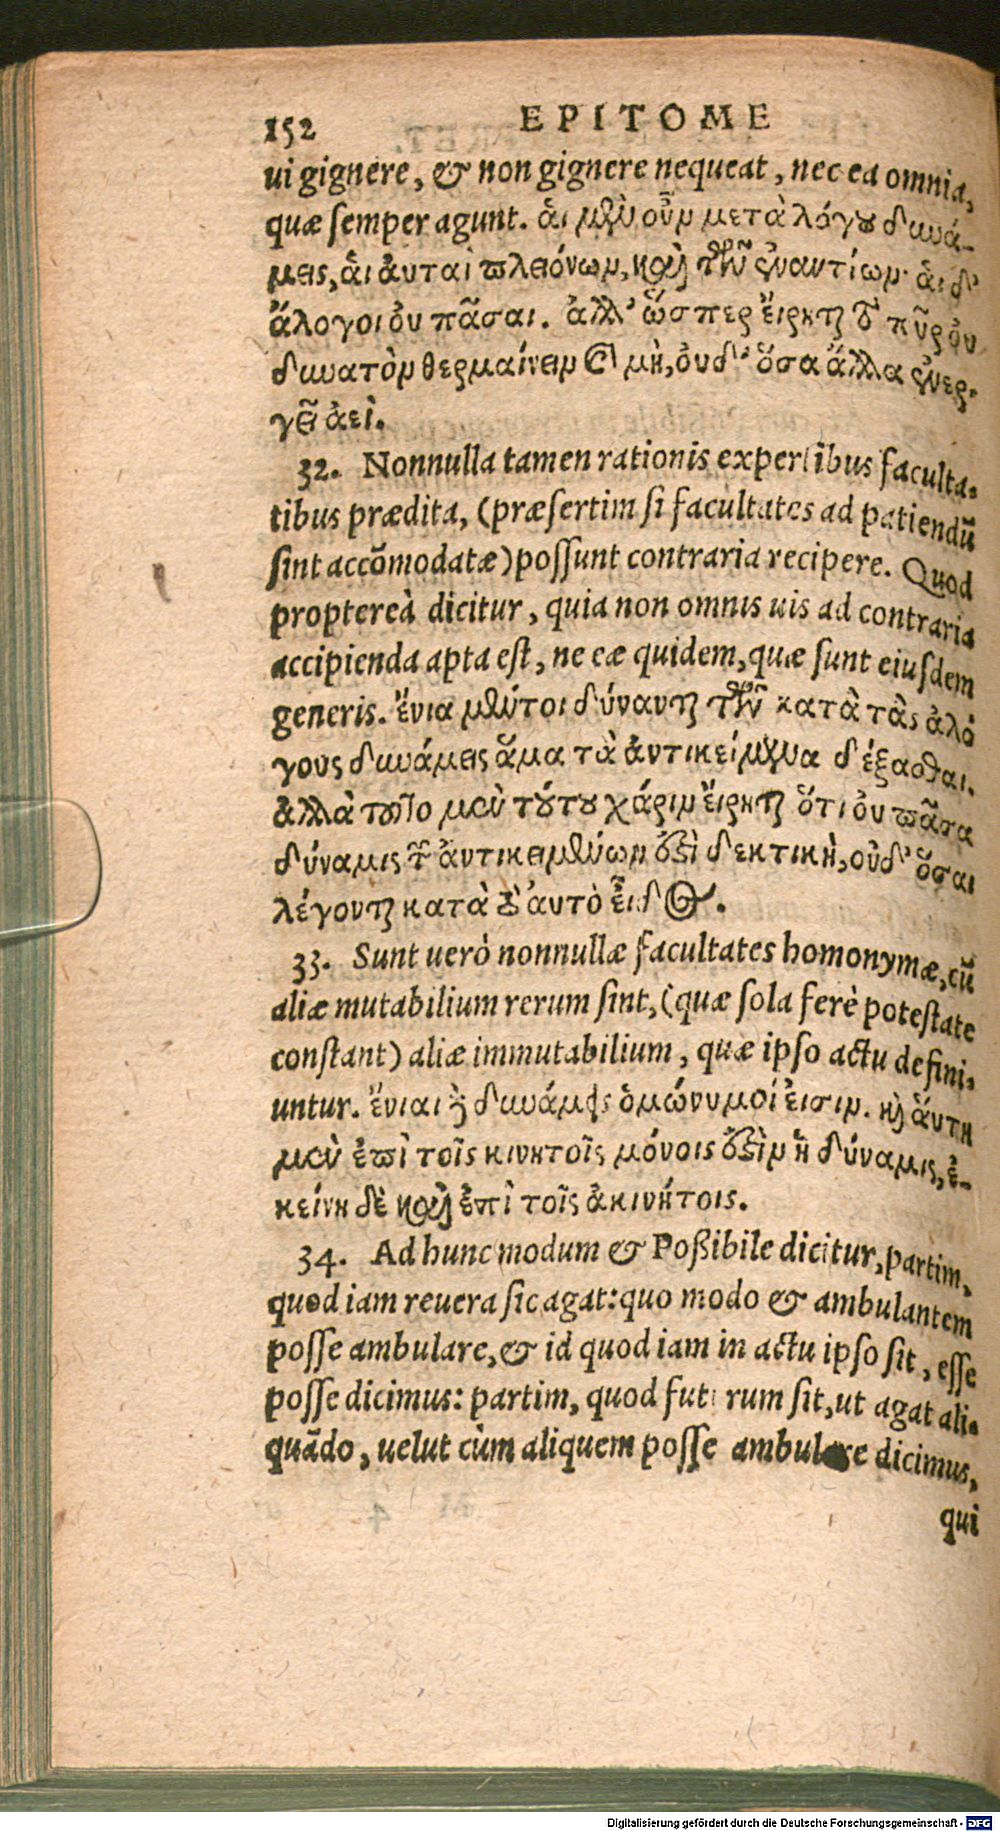 152 EPITOME
ui gignere, & non gignere nequeat, nec ea omnia,
quæ semper agunt. ἁι μὲν οὖν μετὰ λόγου δυνά-
μεις, ἁι ἀυταὶ πλειόνων, καὶ τῶν ἐναντίων· ἁι δ'
ἄλογοι ὀυ πᾶσαι. ἀλλ' ὥσπερ ἔιρηται τὸ πῦρ ὀυ
δυνατὸν θερμαίνειν καὶ μὴ, ὀυδ' ὅσα ἄλλα ἐνερ-
γεῖ ἀεὶ.
32. Nonnulla tamen rationis expertibus faculta-
tibus prædita, (præsertim si facultates ad patiendũ
sint accõmodatæ) possunt contraria recipere. Quod
propterea dicitur, quia non omnis uis ad contraria
accipienda apta est, ne eæ quidem, quæ sunt eiusdem
generis. ἔνια μέντοι δύνανται τῶν κατὰ τὰς ἀλό
γους δυνάμεις ἅμα τὰ ἀντικείμενα δέξασθαι.
ἀλλὰ τοῦτο μὲν τούτου χάριν ἔιρηται ὅτι ὀυ πᾶσα
δύναμις τῶν ἀντικειμένων ἐστὶ δεκτικὴ, οὐδ' ὅσαι
λέγονται κατὰ τὸ ἀυτὸ εἶδος.
33. Sunt uerò nonnullæ facultates homonymæ, cũ
aliæ mutabilium rerum sint, (quæ sola ferè potestate
constant) aliæ immutabilium, quæ ipso actu defini-
untur. ἔνιαι δὲ δυνάμεις ὁμώνυμοί ἐισιν. καὶ ἅυτη
μὲν ἐπὶ τοῖς κινητοῖς μόνοις ἐστὶν ἡ δύναμις, ἐ-
κείνη δὲ καὶ ἐπὶ τοῖς ἀκινήτοις.
34. Ad hunc modum & Poßibile dicitur, partim,
quod iam reuera sic agat: quo modo & ambulantem
posse ambulare, & id quod iam in actu ipso sit, esse
posse dicimus: partim, quod futurum sit, ut agat ali-
quãdo, uelut cùm aliquem posse ambulare dicimus,
qui
Digitalisierung gefördert durch die Deutsche Forschungsgemeinschaft - DFG